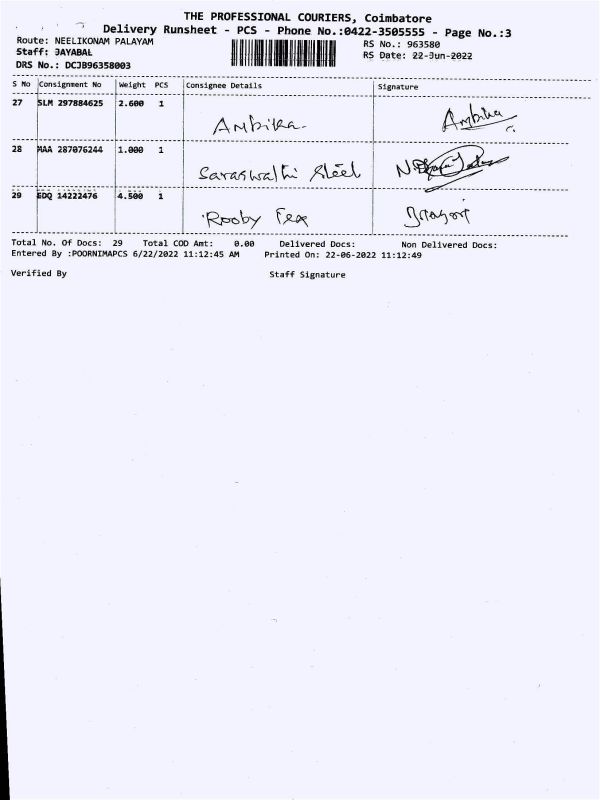 THE PROFESSIONAL COURIERS, Coimbatore
Delivery Runsheet - PCS - Phone No.:0422-3505555 - Page No.:3
Route: NEELIKONAM PALAYAM RS No.: 963580
Staff: JAYABAL RS Date: 22-Jun-2022
DRS No.: DCJB96358003
S No Consignment No Weight PCS Consignee Details Signature
27 SLM 297884625 2.600 1 Ambika. Ambika
28 MAA 287076244 1.000 1 Saraswathi Steel
29 EDQ 14222476 4.500 1 Rooby Tex
Total No. Of Docs: 29 Total COD Amt: 0.00 Delivered Docs: Non Delivered Docs:
Entered By :POORNIMAPCS 6/22/2022 11:12:45 AM Printed On: 22-06-2022 11:12:49
Verified By Staff Signature